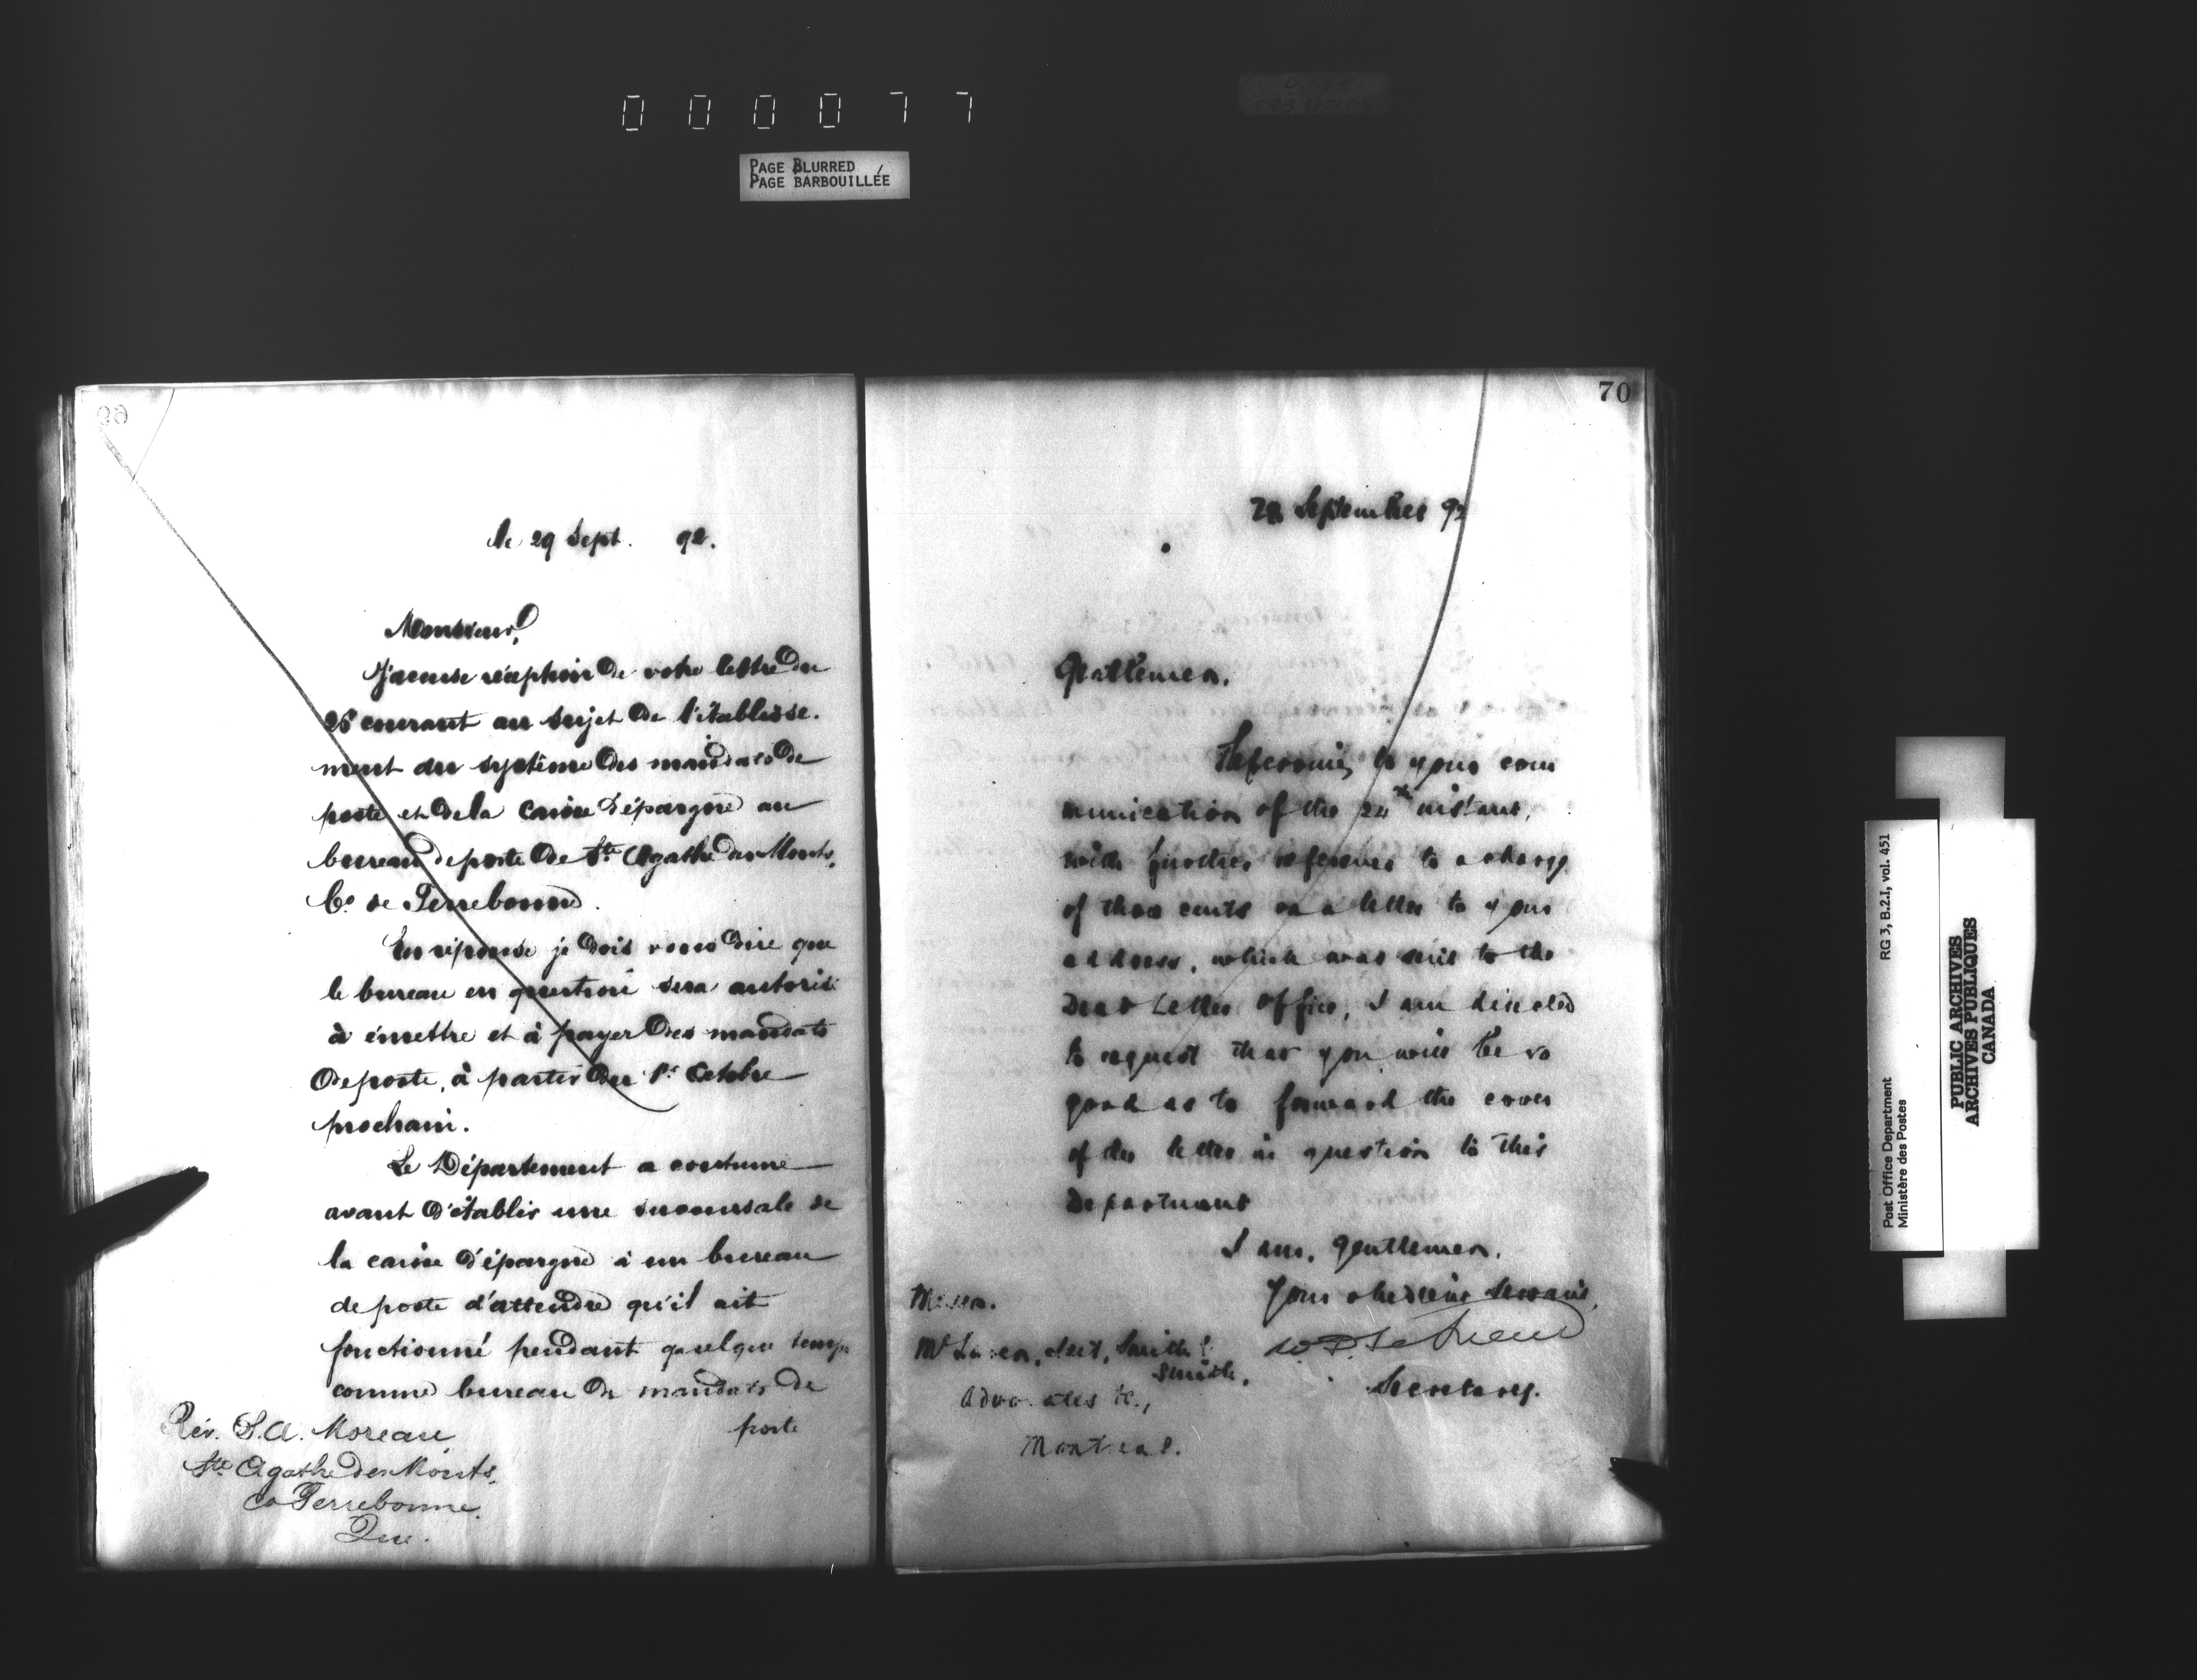 000077
PAGE BLURRED
PAGE BARBOUILLÉE
69
le 29 Sept. 92.
Monsieur,
J'accuse réception de votre lettre du
26 courant au sujet de l'établisse-
ment du système des mandats de
poste et de la caisse d'épargne au
bureau de poste de Ste Agathe des Monts,
Co. de Terrebonne.
En réponse je dois vous dire que
le bureau en question sera autorisé
à émettre et à payer des mandats
de poste, à partir du 1er Octobre
prochain.
Le Département a coutume
avant d'établir une succursale de
la caisse d'épargne à un bureau
de poste d'attendre qu'il ait
fonctionné pendant quelque temps
comme bureau de mandats de
poste
Rév. S.A. Moreau
Ste Agathe des Monts,
Co Terrebonne.
Que.
70
September 92
Gentlemen,
Referring to your com
munication of the 24th instant,
with further reference to a charge
of three cents on a letter to your
address, which was sent to the
Dead Letter Office, I am directed
to request that you will be so
good as to forward the cover
of the letter in question to this
Department
I am, gentlemen,
Your obedient Servant,
Secretary.
Messrs.
Smith &
Smith,
Advocates &c.,
Montreal.
RG 3, B.2.1, vol. 451
Post Office Department
Ministère des Postes
PUBLIC ARCHIVES
ARCHIVES PUBLIQUES
CANADA